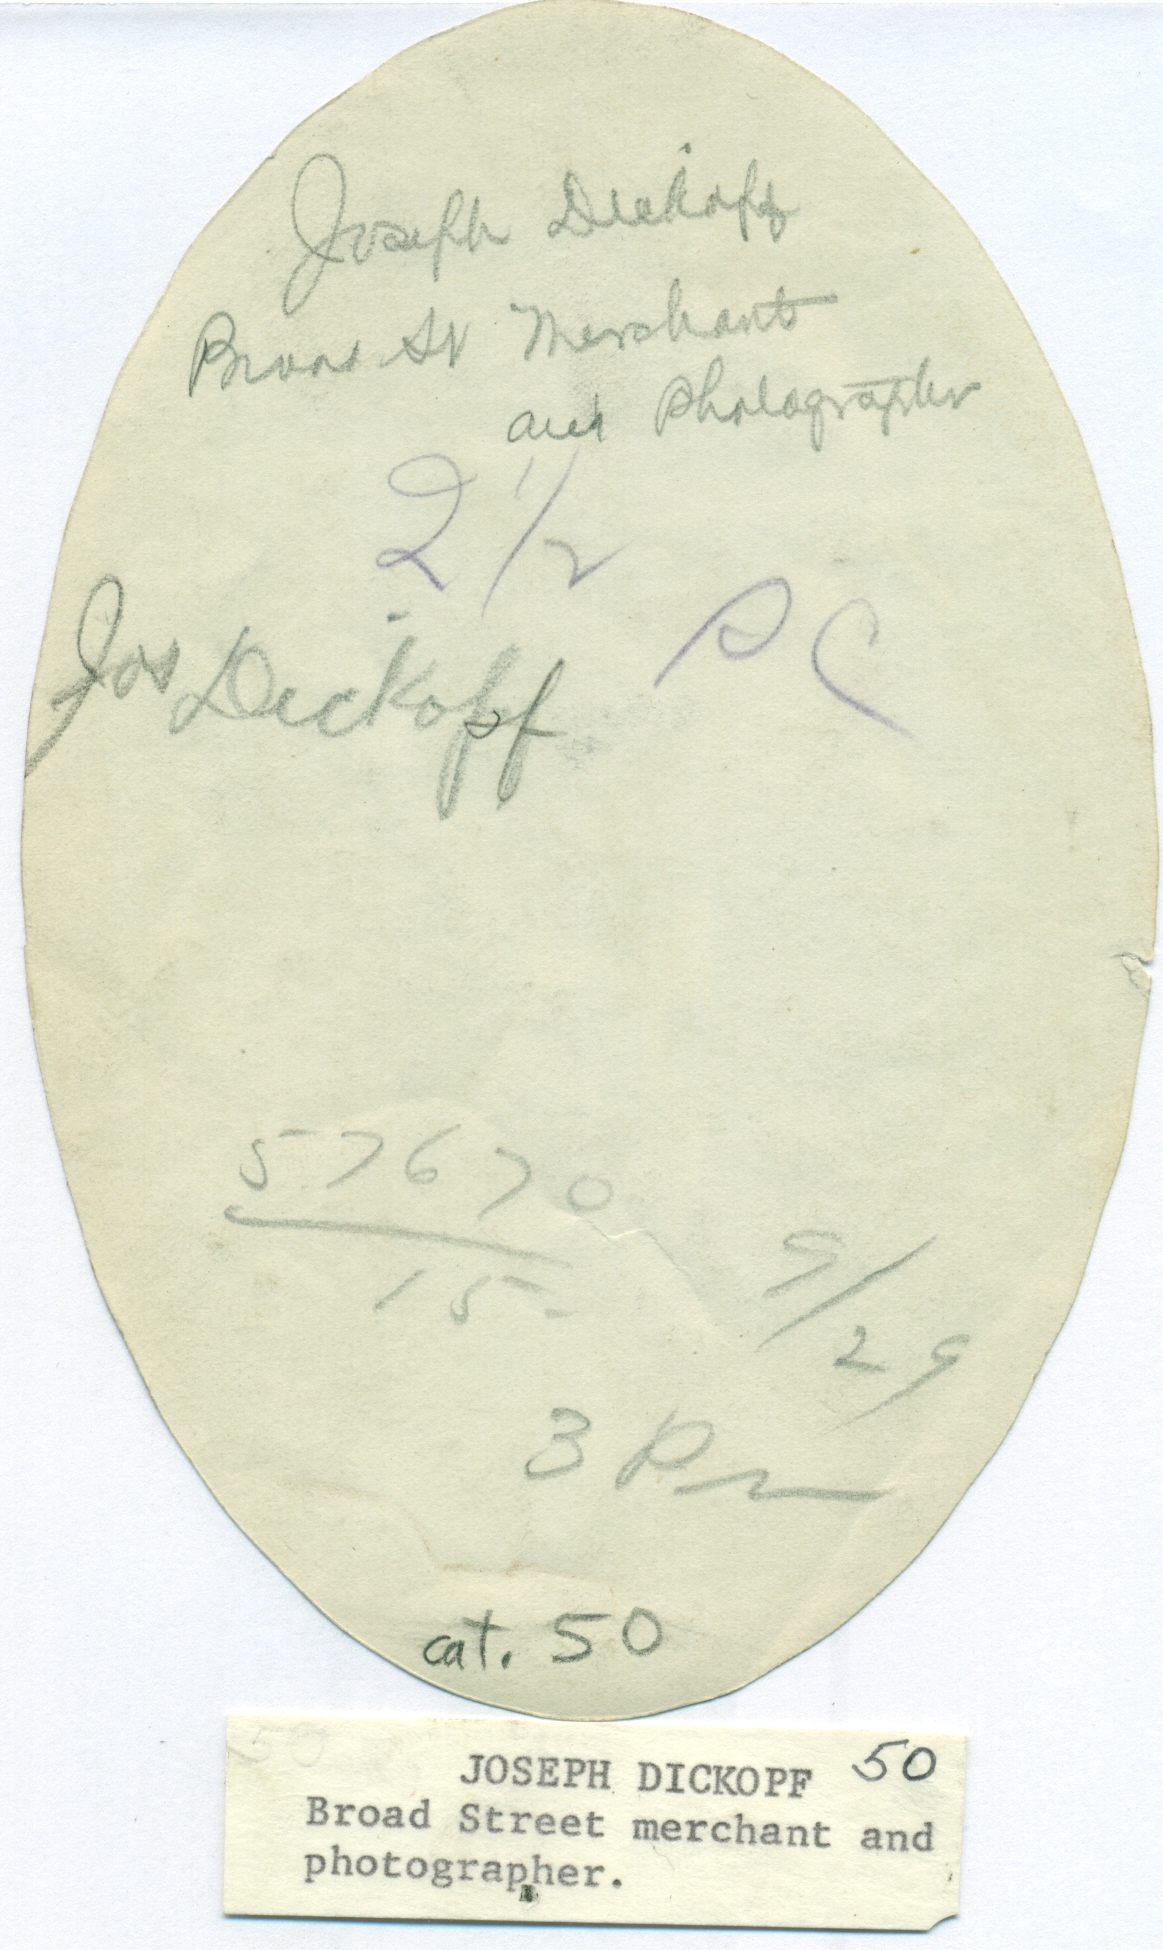 Joseph Dickopf
Broad St Merchant
and Photographer
2 1/2
PC
Jos Dickopf
57670
15-
9/29
3 Pm
cat. 50
50
JOSEPH DICKOPF 50
Broad Street merchant and
photographer.